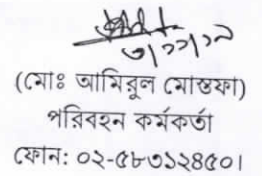 (মোঃ আমিরুল মোস্তফা)
পরিবহন কর্মকর্তা
ফোন: ০২-৫৮৩১২৪৫০।